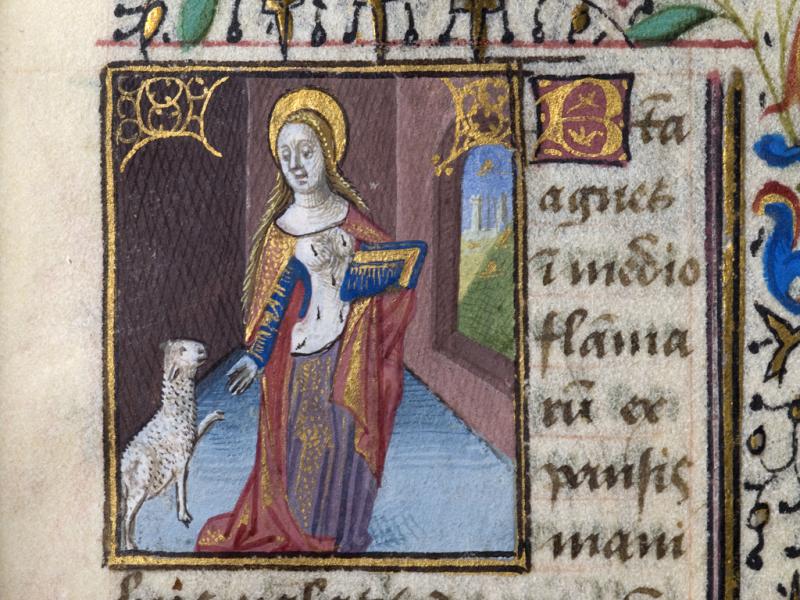 Bt̄a
agnes
ī medio
flāma
rū ex
pansis
mani